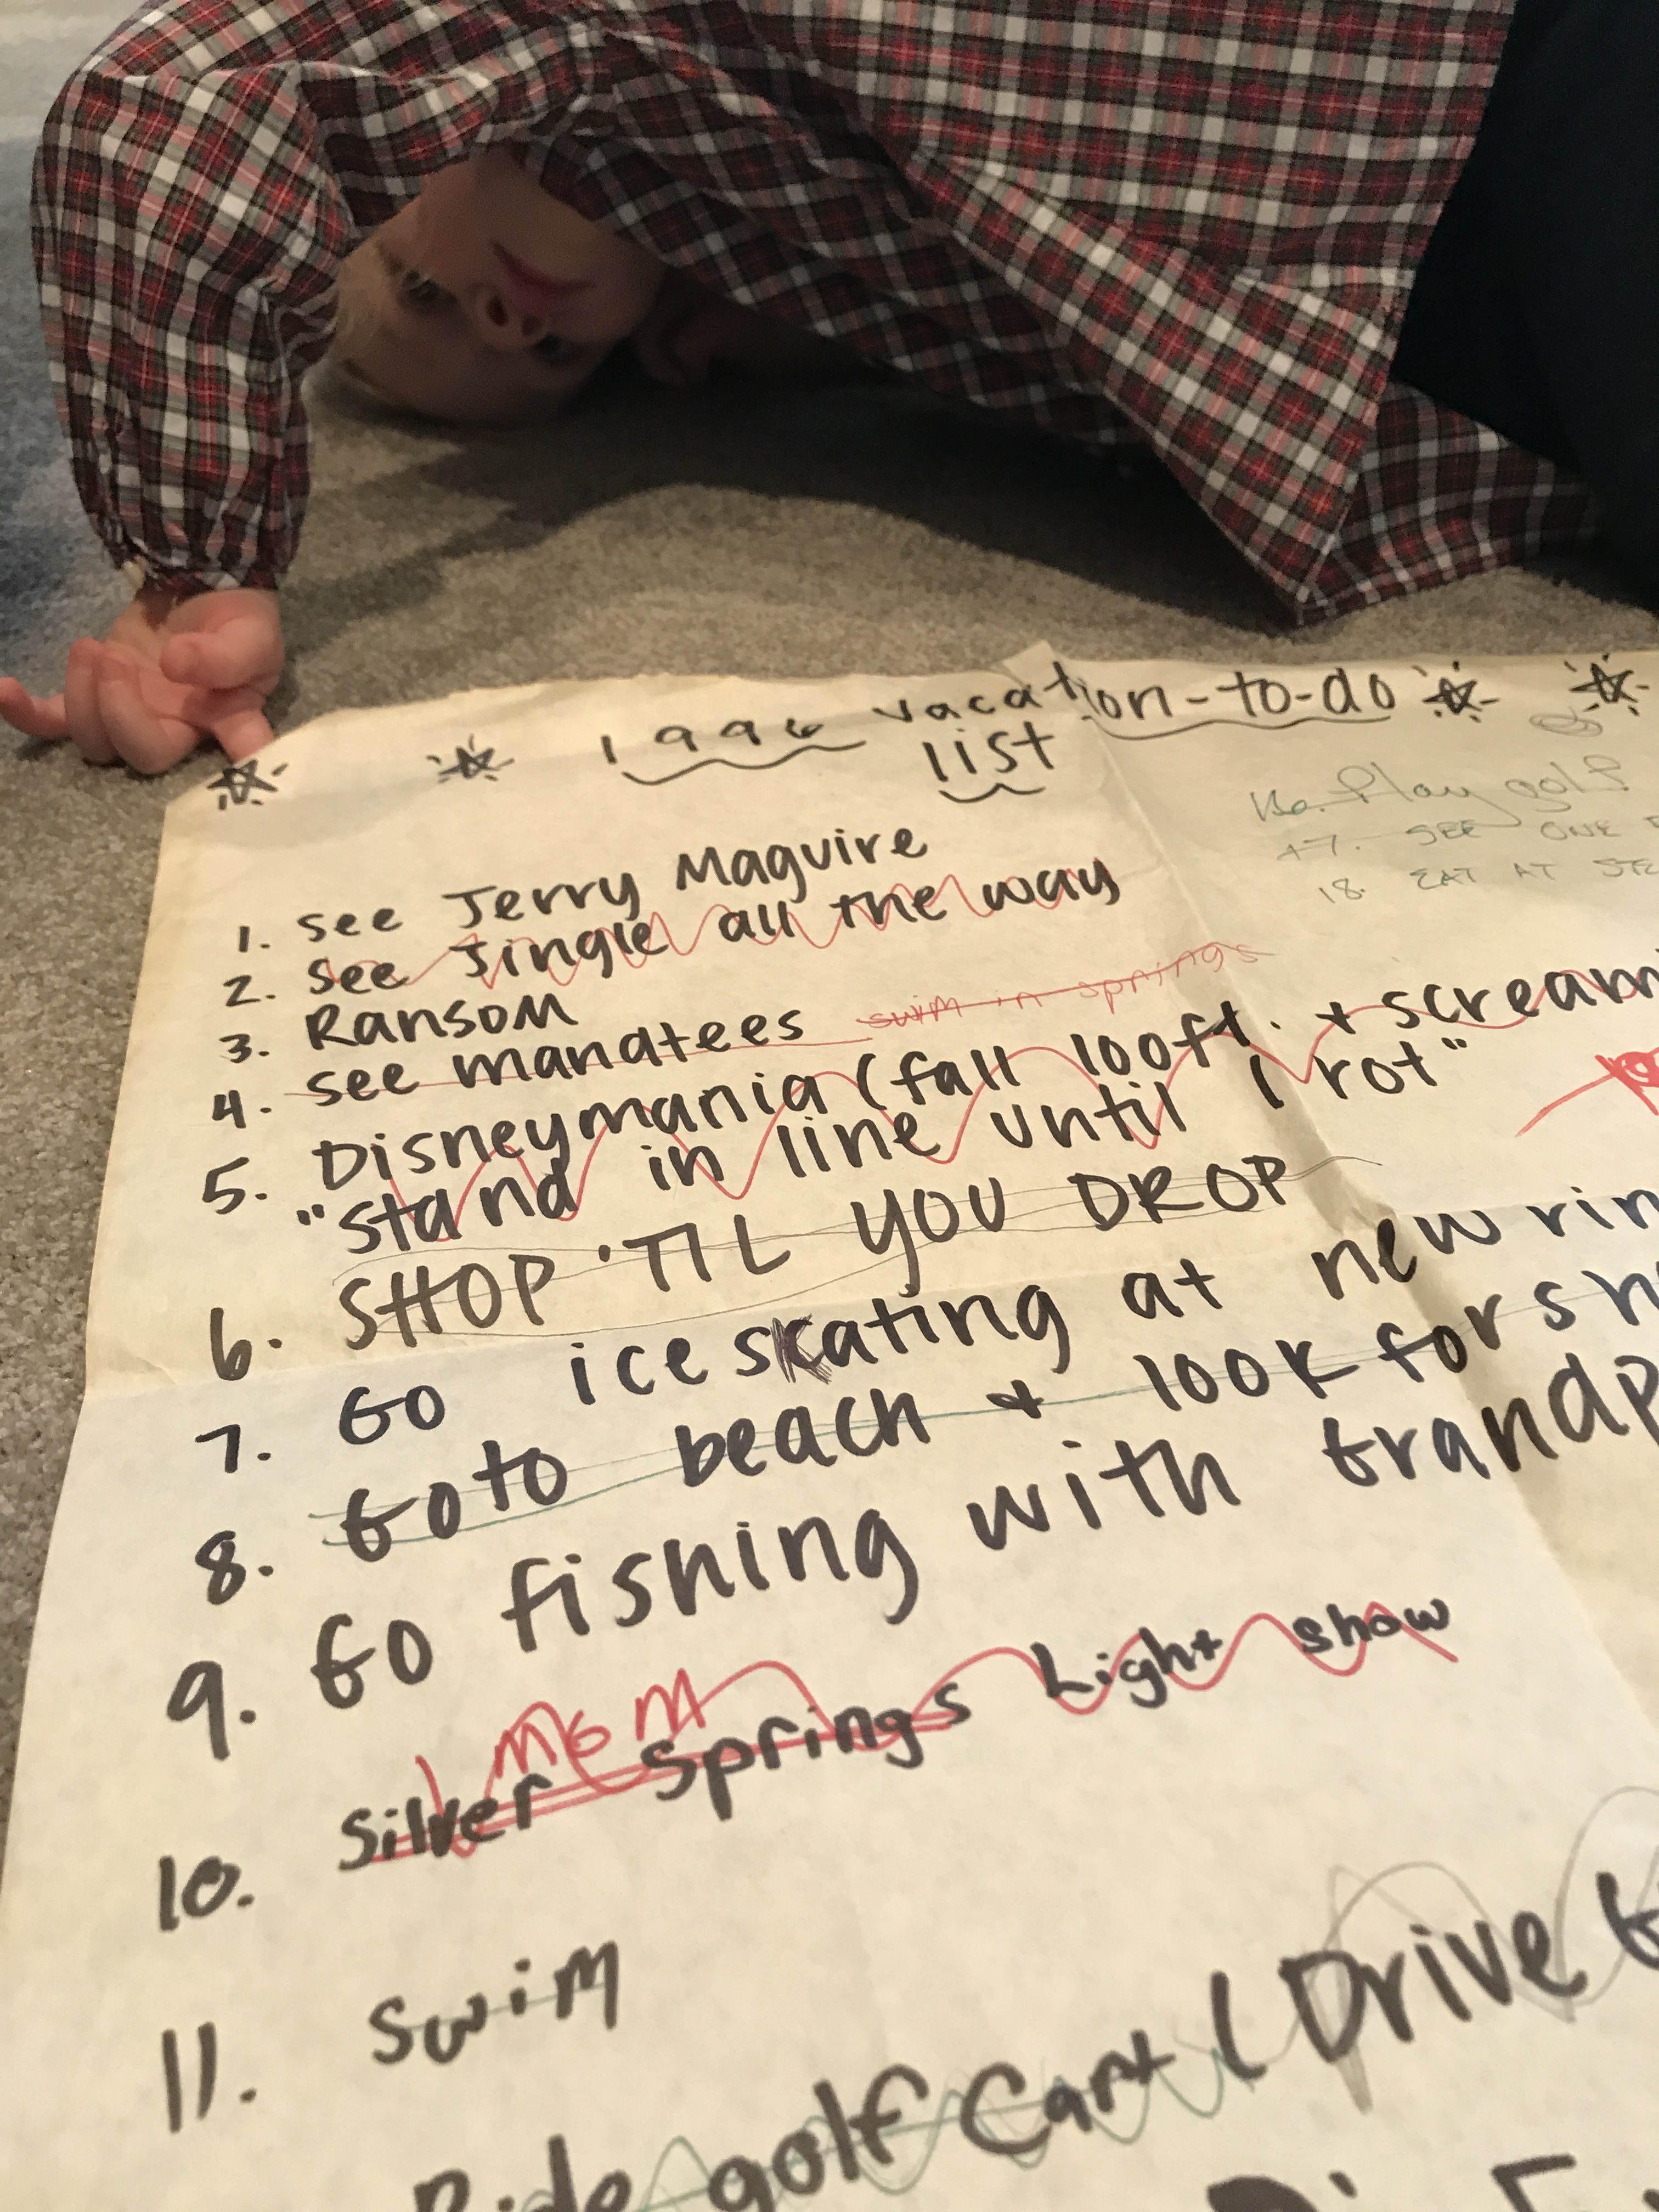 1996 vacation-to-do
list
1. see Jerry Maguire
2. see Jingle all the way
3. Ransom
4. see manatees swim in springs
5. Disneymania (fall 100ft. + scream
"stand in line until I rot"
6. SHOP 'TIL YOU DROP
7. Go ice skating at new
8. Go to beach + look for
9. Go fishing with
MOM
10. Silver Springs Light show
11. swim
Ride golf Cart (Drive
16. Play golf
17. SEE ONE
18. EAT AT